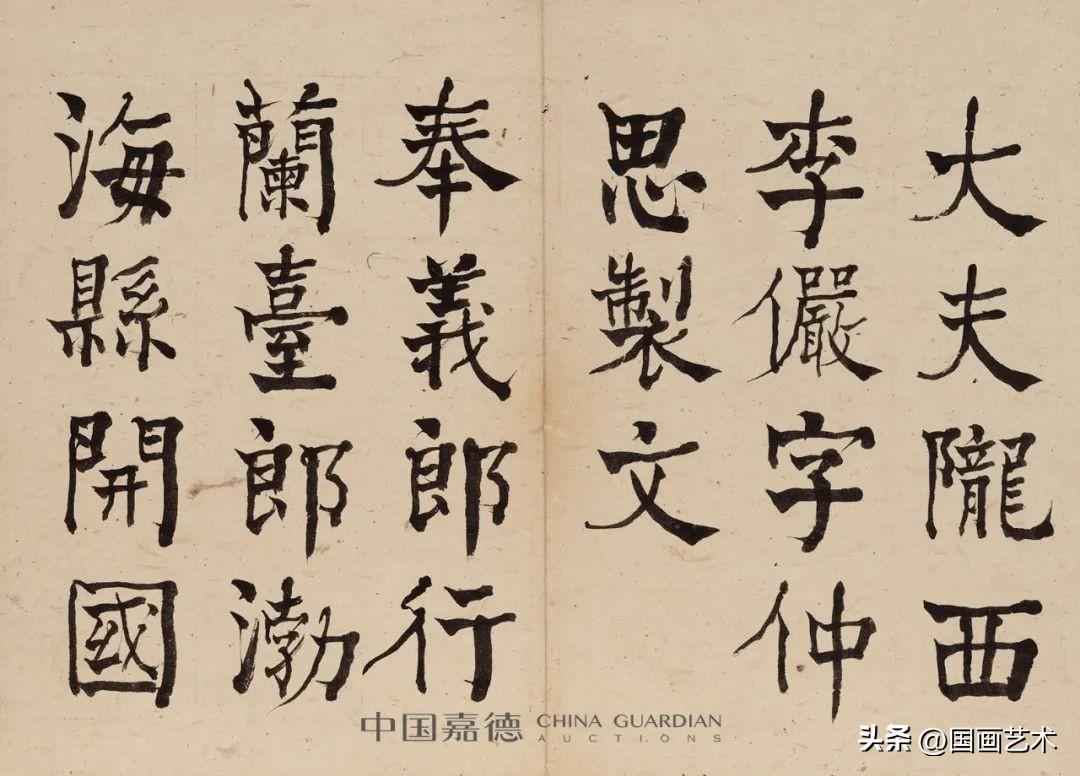 大夫隴西
李儼字仲
思製文
奉義郎行
蘭臺郎渤
海縣開國
中国嘉德 CHINA GUARDIAN
AUCTIONS
头条 @国画艺术